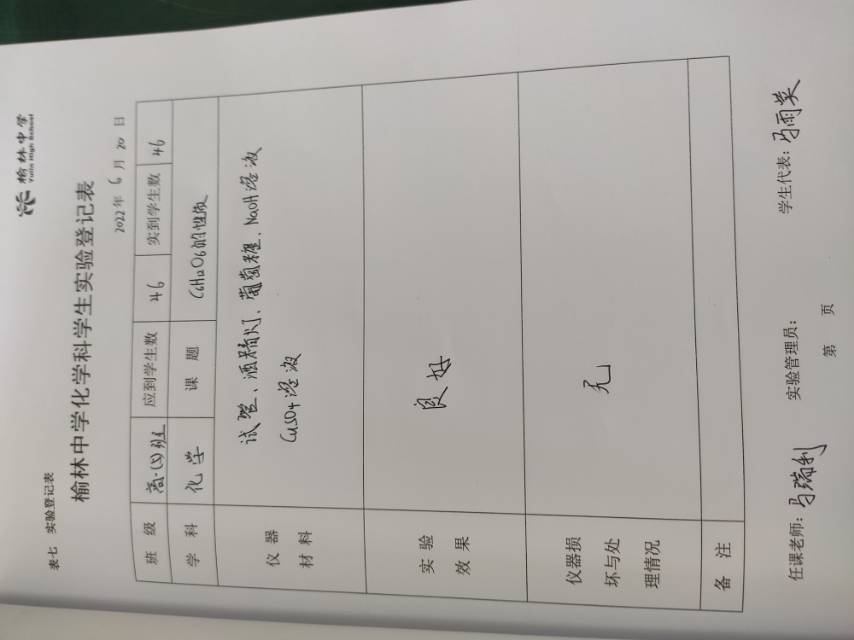 榆林中学
Yulin High School
表七 实验登记表
榆林中学化学科学生实验登记表
2022年 6月 20日
班 级 高一(5)班 应到学生数 46 实到学生数 46
学 科 化学 课 题 C6H12O6的性质
仪器
材料
试管、酒精灯、葡萄糖、NaOH溶液
CuSO4溶液
实验
效果
良好
仪器损
坏与处
理情况
无
备 注
任课老师：马瑞利 实验管理员： 学生代表：马雨英
第 页